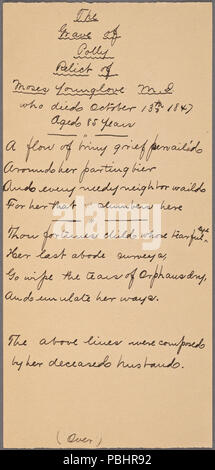 The
Grave of
Polly
Relict of
Moses Younglove M.D
who died October 13th 1847
Aged 85 years
A flow of briny grief pervailed
Around her parting bier
And every needy neighbor waild
For her that slumbers here
Thou fortunes child whose tearful eye
Her last abode surveys,
Go wipe the tears of Orphans dry,
And emulate her ways.
The above lines were composed
by her deceased husband.
(Over)
alamy
alamy
Image ID: PBHR92
www.alamy.com